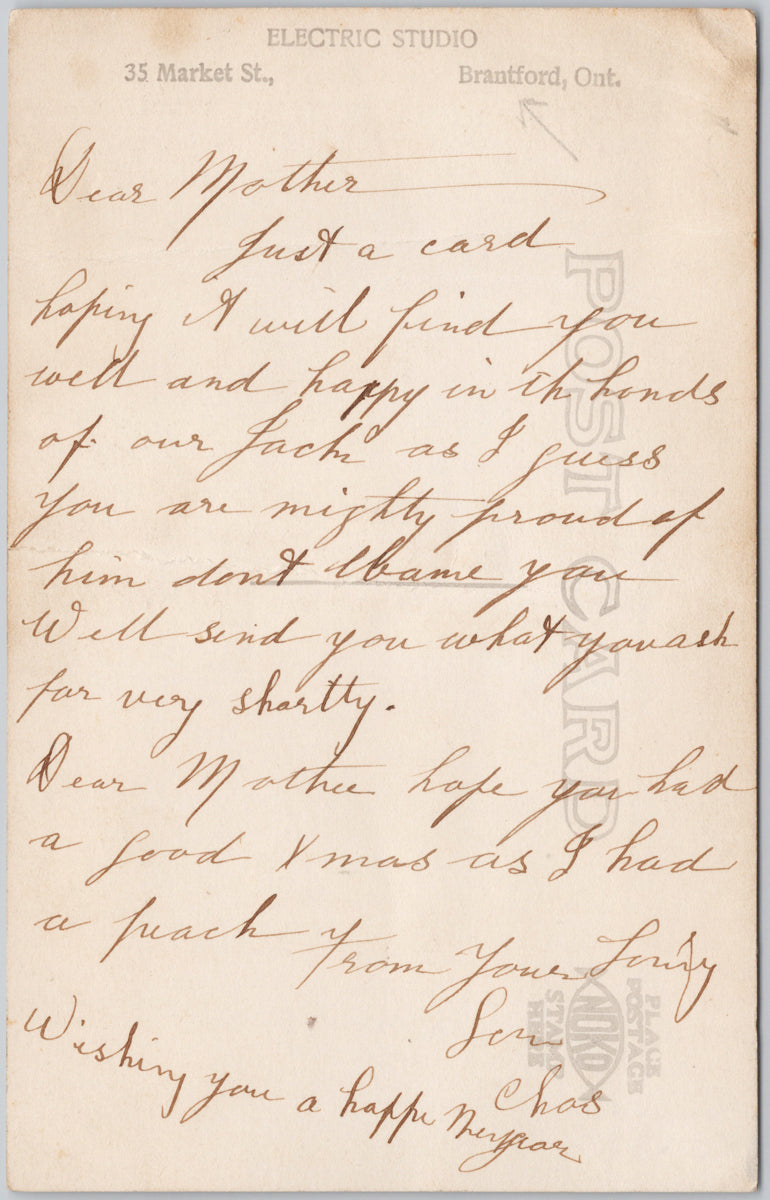 ELECTRIC STUDIO
35 Market St., Brantford, Ont.
Dear Mother
Just a card
hoping it will find you
well and happy in th hands
of our Jack as I guess
you are mighty proud of
him dont blame you
Well send you what you ask
for very shortly.
Dear Mother hope you had
a good Xmas as I had
a peach
From Your Loving
Son
Chas
Wishing you a happe Neyear
POST CARD
PLACE
POSTAGE
NOKO
STAMP
HERE